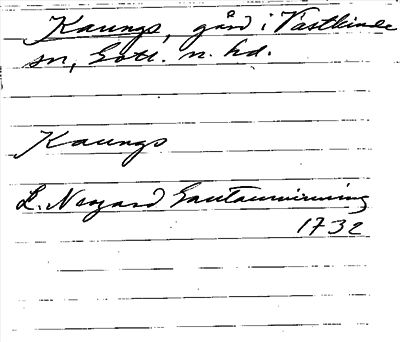 Kaungs, gård i Västkinde
sn, Gotl. n. hd.
Kaungs
L. Neogard Gautauminning
1732